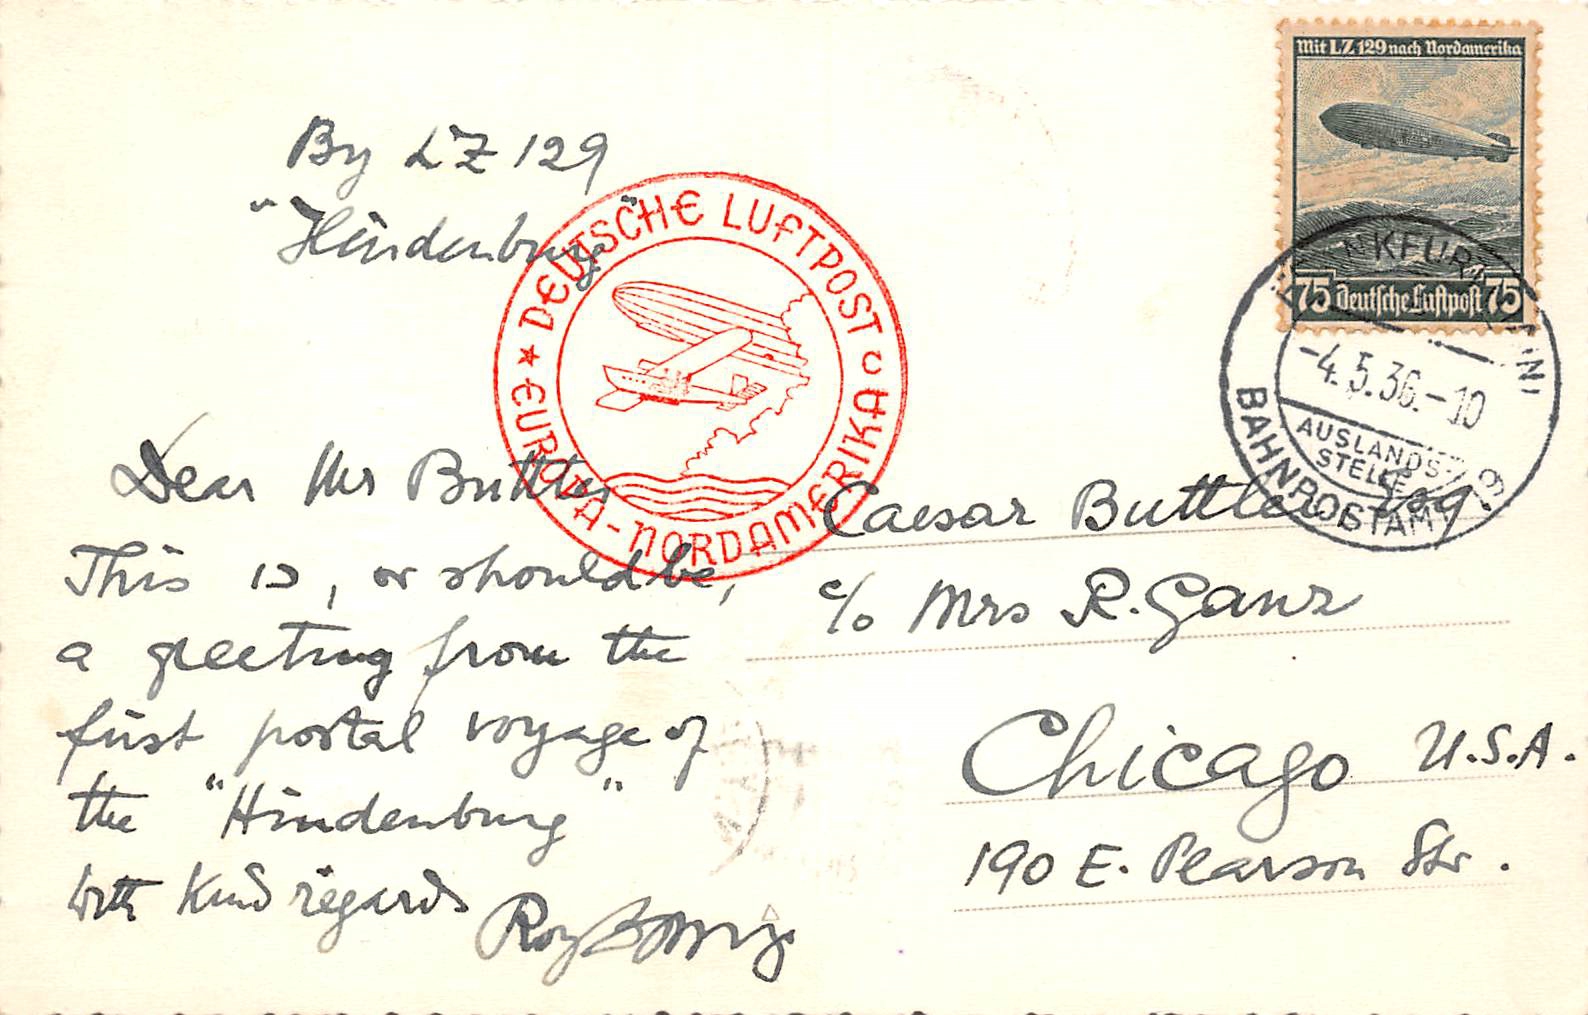 Mit LZ 129 nach Nordamerika
75 Deutsche Luftpost 75
By LZ 129
"Hindenburg"
DEUTSCHE LUFTPOST
EUROPA-NORDAMERIKA
-4.5.36.-10
AUSLANDS-
STELLE
BAHNPOSTAMT 19
Dear Mr Buttler
This is, or should be,
a greeting from the
first postal voyage of
the "Hindenburg"
with kind regards
Roy
Caesar Buttler, Esq
c/o Mrs R. Ganz
Chicago U.S.A.
190 E. Pearson Str.